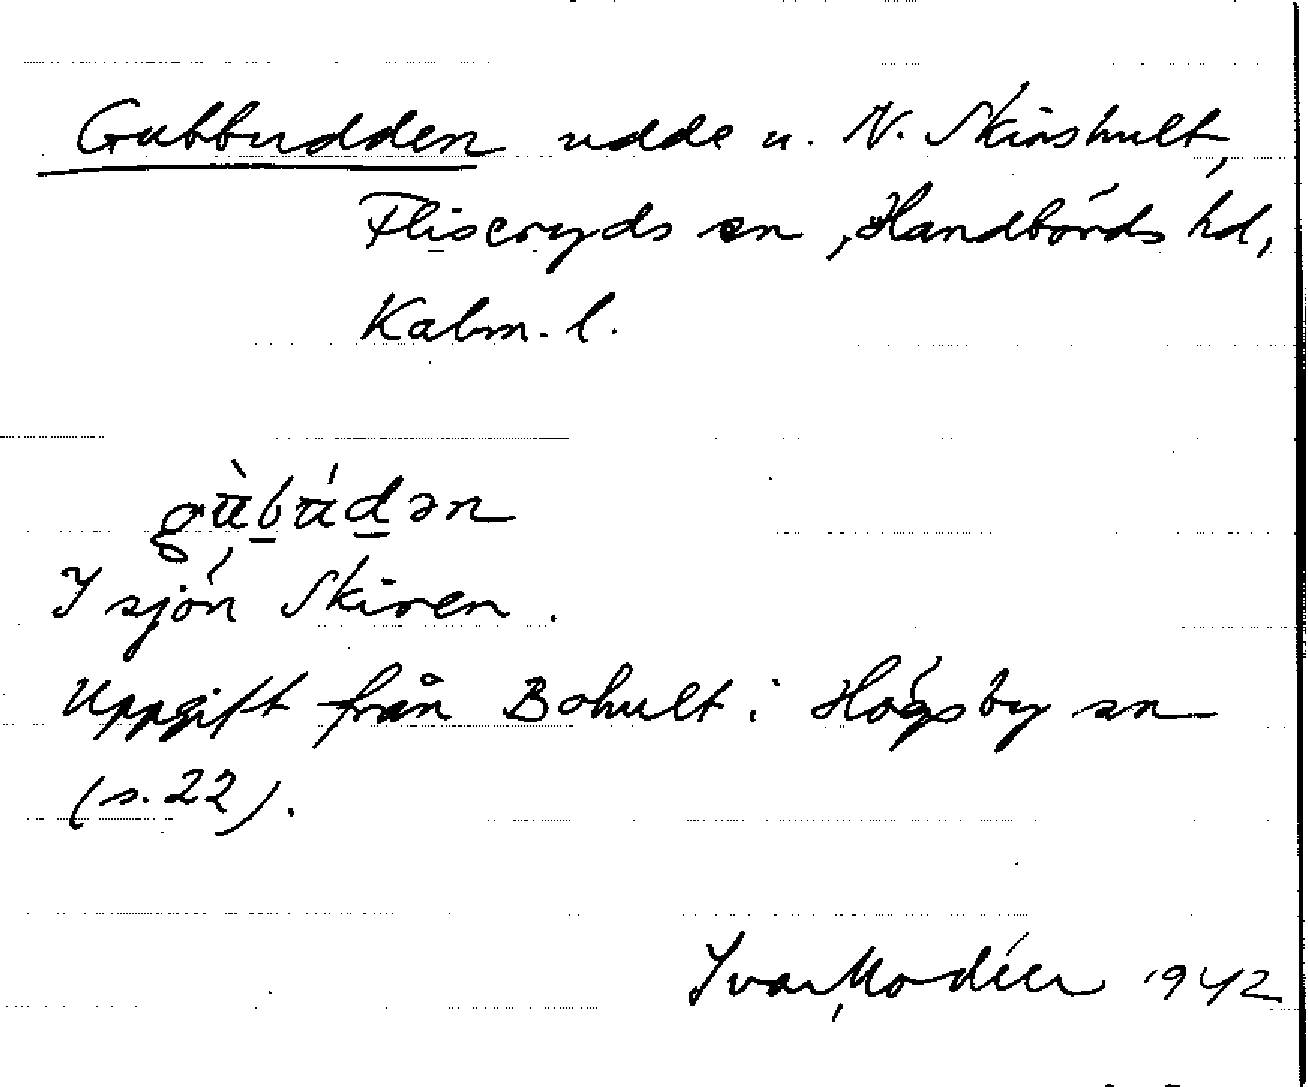 Gubbudden udde u. N. Skirshult,
Fliseryds sn, Handbörds hd,
Kalm. l.
gùbúdən
I sjön Skiren.
Uppgift från Bohult i Högsby sn
(s. 22).
Ivar Modéer 1942